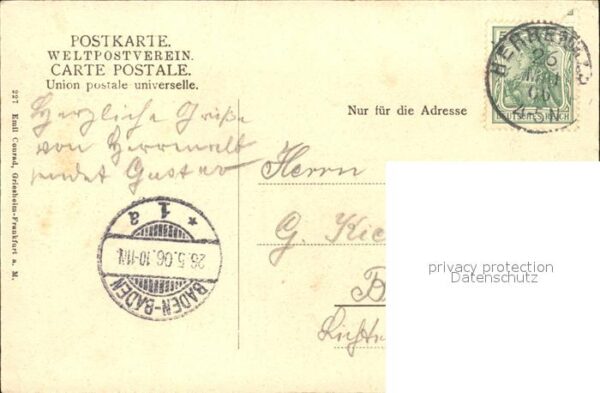 POSTKARTE.
WELTPOSTVEREIN.
CARTE POSTALE.
Union postale universelle.
Herzliche Grüße
von Herrenalb
sendet Gustav
227 Emil Conrad, Griesheim-Frankfurt a. M.
BADEN-BADEN
26.5.06.10-11V.
* 1 a
Nur für die Adresse
DEUTSCHES REICH
HERRENALB
26
06
4-5N
Herrn
G.
B
privacy protection
Datenschutz